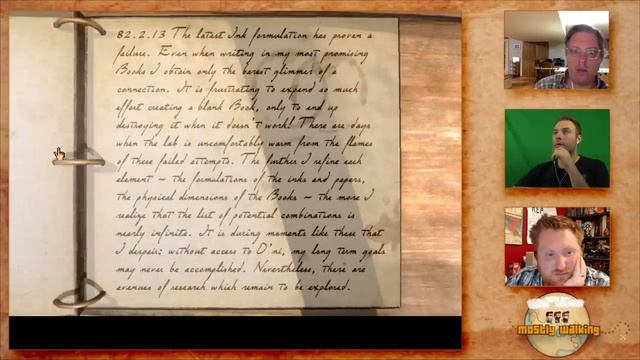 82.2.13 The latest Ink formulation has proven a
failure. Even when writing in my most promising
Books I obtain only the barest glimmer of a
connection. It is frustrating to expend so much
effort creating a blank Book, only to end up
destroying it when it doesn't work! There are days
when the lab is uncomfortably warm from the flames
of these failed attempts. The further I refine each
element – the formulations of the inks and papers,
the physical dimensions of the Books – the more I
realize that the list of potential combinations is
nearly infinite. It is during moments like these that
I despair: without access to D'ni, my long term goals
may never be accomplished. Nevertheless, there are
avenues of research which remain to be explored.
mostly walking